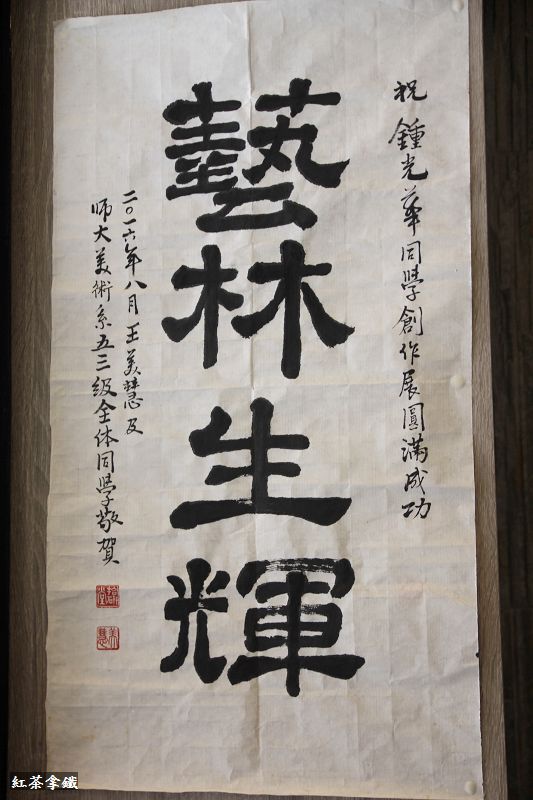 祝鍾光華同學創作展圓滿成功
藝林生輝
二〇一六年八月王美慧及
师大美術系五三級全体同學敬賀
美慧
紅茶拿鐵